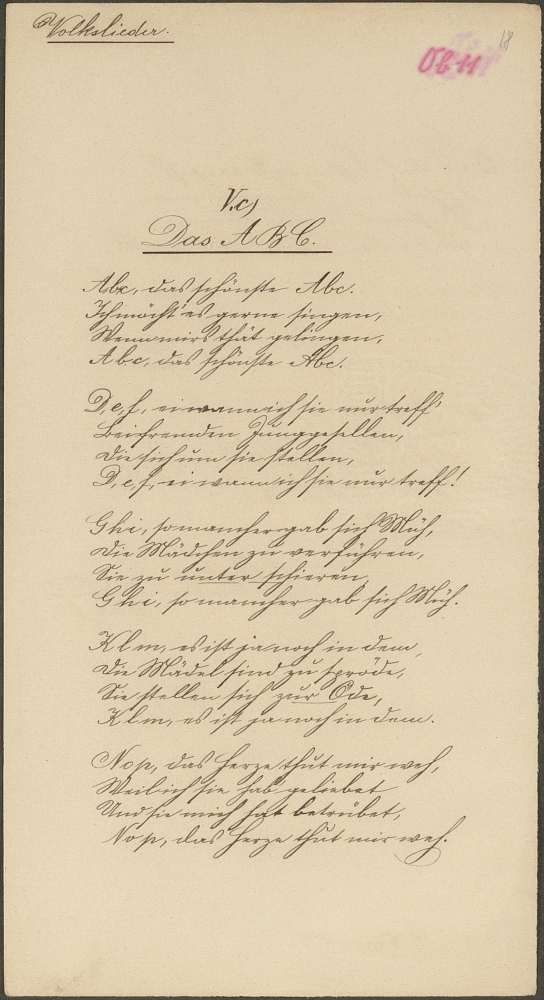 Volkslieder.
18
Ob 11
V. c)
Das A B C.
Abc, das schönste Abc.
Ich möcht' es gerne singen,
Wenn mirs thät gelingen,
Abc, das schönste Abc.
D, e, f, ei wann ich sie nur treff'
Bei fremden Junggesellen,
Die sich um sie stellen,
D, e, f, ei wann ich sie nur treff!
Ghi, so mancher gab sich Müh,
Die Mädchen zu verführen,
Sie zu unter schieren,
Ghi, so mancher gab sich Müh.
Klm, es ist ja noch in dem,
Die Mädel sind zu spröde,
Sie stellen sich zur Öde,
Klm, es ist ja noch in dem.
Nop, das Herze thut mir weh,
Weil ich sie hab geliebet
Und sie mich hat betrübet,
Nop, das Herze thut mir weh.